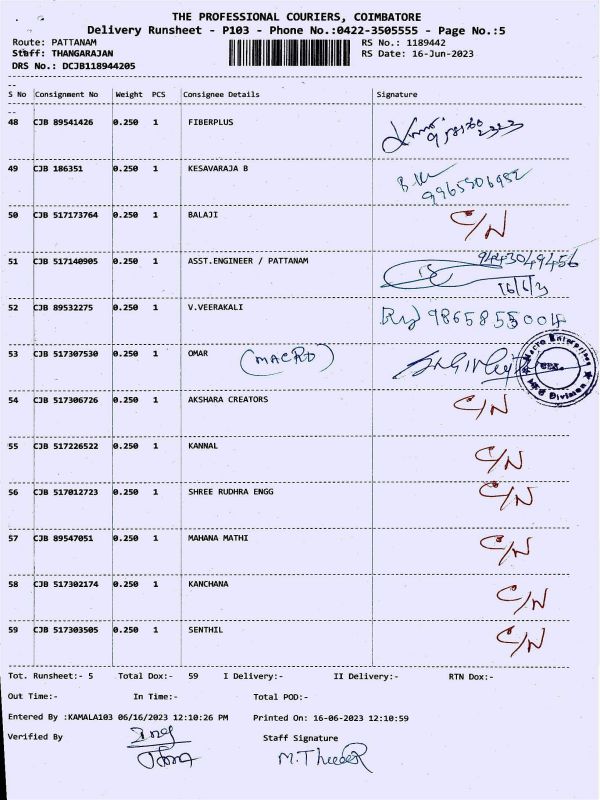 THE PROFESSIONAL COURIERS, COIMBATORE
Delivery Runsheet - P103 - Phone No.:0422-3505555 - Page No.:5
Route: PATTANAM RS No.: 1189442
Staff: THANGARAJAN RS Date: 16-Jun-2023
DRS No.: DCJB118944205
S No Consignment No Weight PCS Consignee Details Signature
48 CJB 89541426 0.250 1 FIBERPLUS
49 CJB 186351 0.250 1 KESAVARAJA B
9965306982
50 CJB 517173764 0.250 1 BALAJI C/N
51 CJB 517140905 0.250 1 ASST.ENGINEER / PATTANAM 9443049456
16/6/23
52 CJB 89532275 0.250 1 V.VEERAKALI
53 CJB 517307530 0.250 1 OMAR (MACRO) Macro Enterprises
54 CJB 517306726 0.250 1 AKSHARA CREATORS C/N
55 CJB 517226522 0.250 1 KANNAL C/N
56 CJB 517012723 0.250 1 SHREE RUDHRA ENGG C/N
57 CJB 89547051 0.250 1 MAHANA MATHI C/N
58 CJB 517302174 0.250 1 KANCHANA C/N
59 CJB 517303505 0.250 1 SENTHIL C/N
Tot. Runsheet:- 5 Total Dox:- 59 I Delivery:- II Delivery:- RTN Dox:-
Out Time:- In Time:- Total POD:-
Entered By :KAMALA103 06/16/2023 12:10:26 PM Printed On: 16-06-2023 12:10:59
Verified By Staff Signature